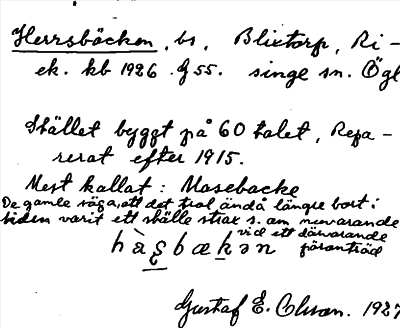 Herrsbäcken, bs, Blixtorp, Ri-
ek. kb 1926. G 55. singe sn. Ögl
Stället byggt på 60 talet, Repa-
rerat efter 1915.
Mest kallat: Mosebacke
De gamle säga, att det trol. ändå längre bort i
tiden varit ett ställe strax s. om nuvarande
vid ett därvarande
päronträd
hàʂbækən
Gustaf E. Olsson. 1927